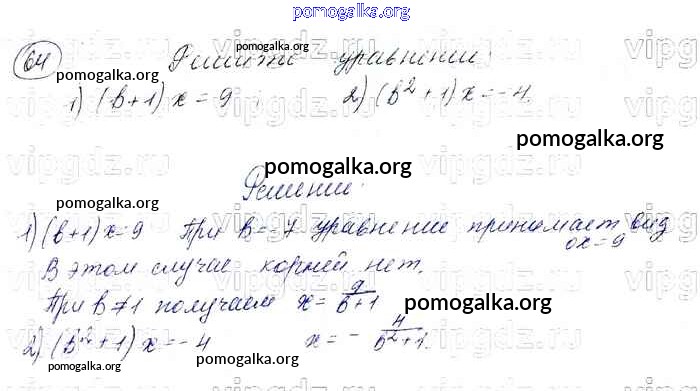 pomogalka.org
64 Решите уравнение:
1) (b+1)x=9 2) (b²+1)x=-4.
Решение:
1) (b+1)x=9 При b=-7 уравнение принимает вид
0x=9
В этом случае корней нет.
При b≠1 получаем x=9/(b+1)
2) (b²+1)x=-4 x=-4/(b²+1).
pomogalka.org
pomogalka.org
pomogalka.org
pomogalka.org
pomogalka.org
pomogalka.org
pomogalka.org
pomogalka.org
vipgdz.ru